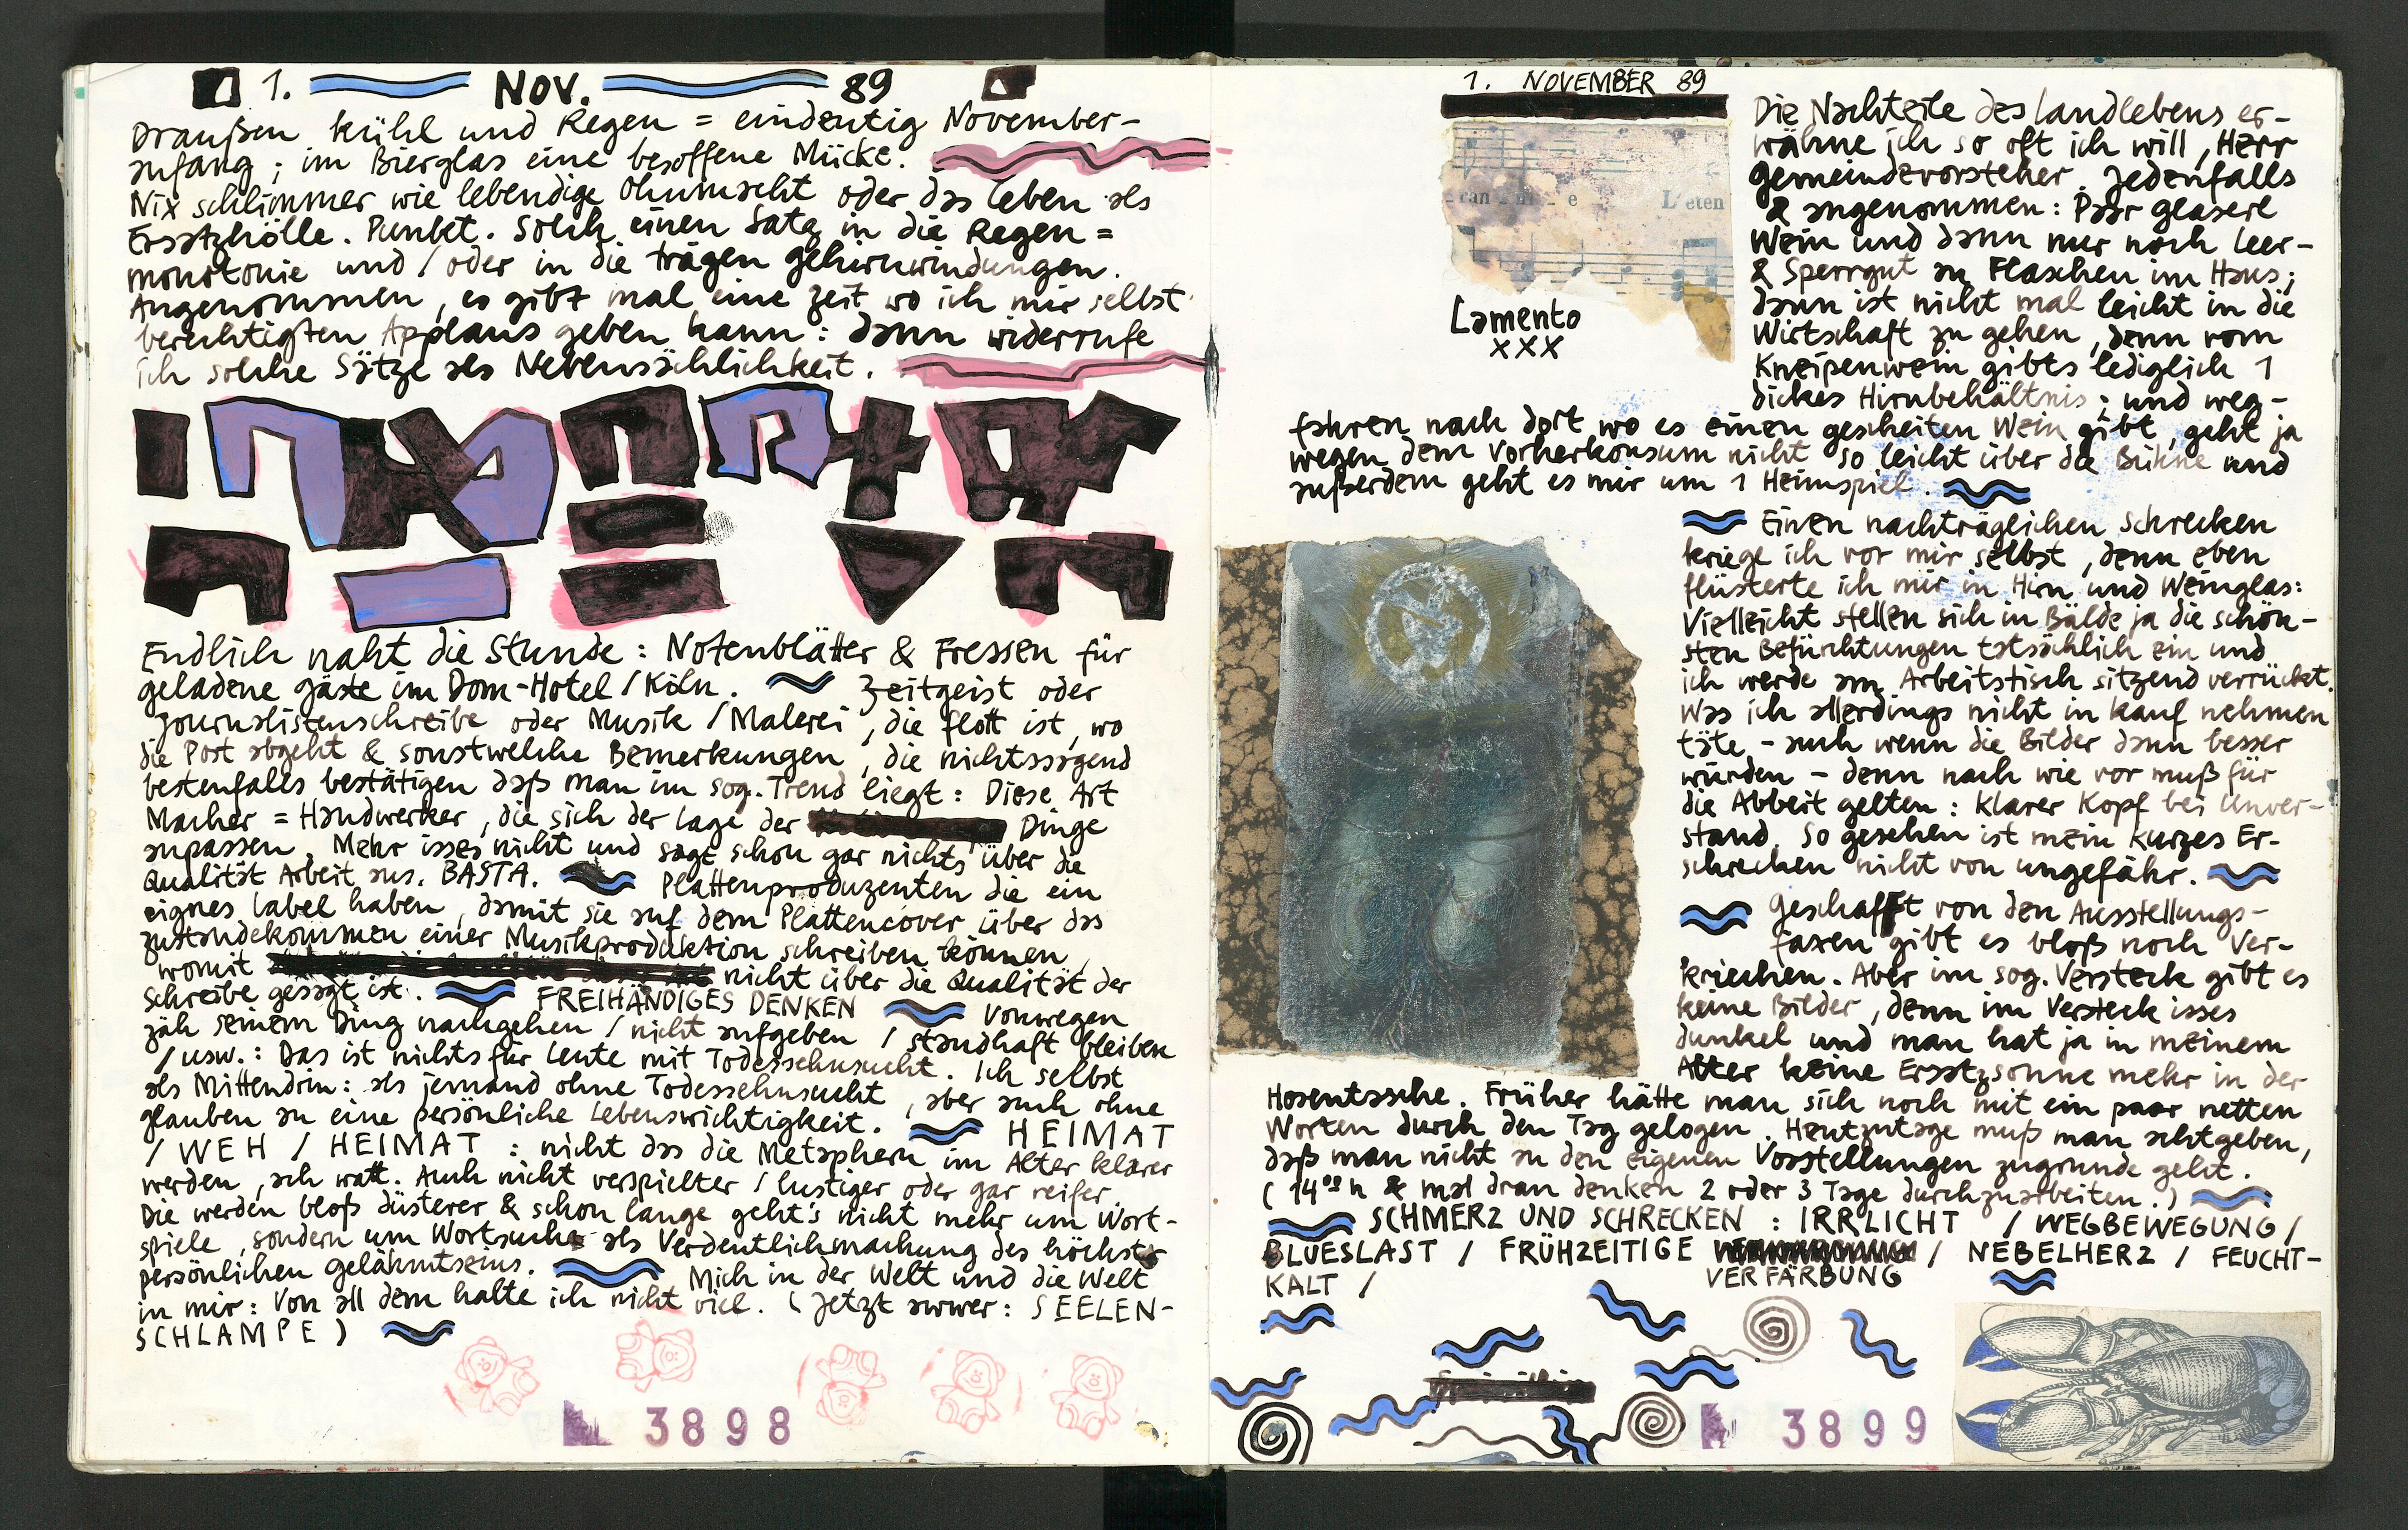 1. NOV. 89
Draußen kühl und Regen = eindeutig November-
anfang ; im Bierglas eine besoffene Mücke.
Nix schlimmer wie lebendige Ohnmacht oder das Leben als
Ersatzhölle. Punkt. Solch einen Satz in die Regen =
monotonie und / oder in die trägen Gehirnwindungen.
Angenommen, es gibt mal eine Zeit wo ich mir selbst
berechtigten Applaus geben kann : dann widerrufe
ich solche Sätze als Nebensächlichkeit.
Endlich naht die Stunde : Notenblätter & Fressen für
geladene Gäste im Dom-Hotel / Köln. Zeitgeist oder
Journalistenschreibe oder Musik / Malerei, die flott ist, wo
die Post abgeht & sonstwelche Bemerkungen, die nichtssagend
bestenfalls bestätigen daß man im sog. Trend liegt : Diese Art
Macher = Handwerker, die sich der Lage der Dinge
anpassen. Mehr isses nicht und sagt schon gar nichts über die
Qualität Arbeit aus. BASTA. Plattenproduzenten die ein
eignes Label haben, damit sie auf dem Plattencover über das
zustandekommen einer Musikproduktion schreiben können,
womit nicht über die Qualität der
Schreibe gesagt ist. FREIHÄNDIGES DENKEN Vonwegen
zäh seinem Ding nachgehen / nicht aufgeben / standhaft bleiben
/ usw. : Das ist nichts für Leute mit Todessehnsucht. Ich selbst
als Mittendrin : als jemand ohne Todessehnsucht, aber auch ohne
glauben an eine persönliche Lebenswichtigkeit. HEIMAT
/ WEH / HEIMAT : nicht das die Metaphern im Alter klarer
werden, ach watt. Auch nicht verspielter / lustiger oder gar reifer.
Die werden bloß düsterer & schon lange geht's nicht mehr um Wort-
spiele, sondern um Wortsuche als Verdeutlichmachung des höchst
persönlichen Gelähmtseins. Mich in der Welt und die Welt
in mir : Von all dem halte ich nicht viel. (Jetzt awwer : SEELEN-
SCHLAMPE)
3898
1. NOVEMBER 89
ran
e
L'eten
Lamento
xxx
Die Nachteile des Landlebens er-
wähne ich so oft ich will, Herr
Gemeindevorsteher. Jedenfalls
& angenommen : Paar Glaserl
Wein und dann nur noch Leer-
& Sperrgut an Flaschen im Haus ;
dann ist nicht mal leicht in die
Wirtschaft zu gehen, denn vom
Kneipenwein gibts lediglich 1
dickes Hirnbehältnis ; und weg-
fahren nach dort wo es einen gescheiten Wein gibt, geht ja
wegen dem Vorherkonsum nicht so leicht über die Bühne und
außerdem geht es mir um 1 Heimspiel.
Einen nachträglichen Schrecken
kriege ich vor mir selbst, denn eben
flüsterte ich mir in Hirn und Weinglas :
Vielleicht stellen sich in Bälde ja die schön-
sten Befürchtungen tatsächlich ein und
ich werde am Arbeitstisch sitzend verrückt.
Was ich allerdings nicht in Kauf nehmen
täte - auch wenn die Bilder dann besser
würden - denn nach wie vor muß für
die Abbeit gelten : Klarer Kopf bei Unver-
stand. So gesehen ist mein kurzes Er-
schrecken nicht von ungefähr.
Geschafft von den Ausstellungs-
faxen gibt es bloß noch Ver-
kriechen. Aber im sog. Versteck gibt es
keine Bilder, denn im Versteck isses
dunkel und man hat ja in meinem
Alter keine Ersatzsonne mehr in der
Hosentasche. Früher hätte man sich noch mit ein paar netten
Worten durch den Tag gelogen. Heutzutage muß man achtgeben,
daß man nicht an den eigenen Vorstellungen zugrunde geht.
(14°° h & mal dran denken 2 oder 3 Tage durchzuarbeiten.)
SCHMERZ UND SCHRECKEN : IRRLICHT / WEGBEWEGUNG /
BLUESLAST / FRÜHZEITIGE VERFÄRBUNG / NEBELHERZ / FEUCHT-
KALT /
3899